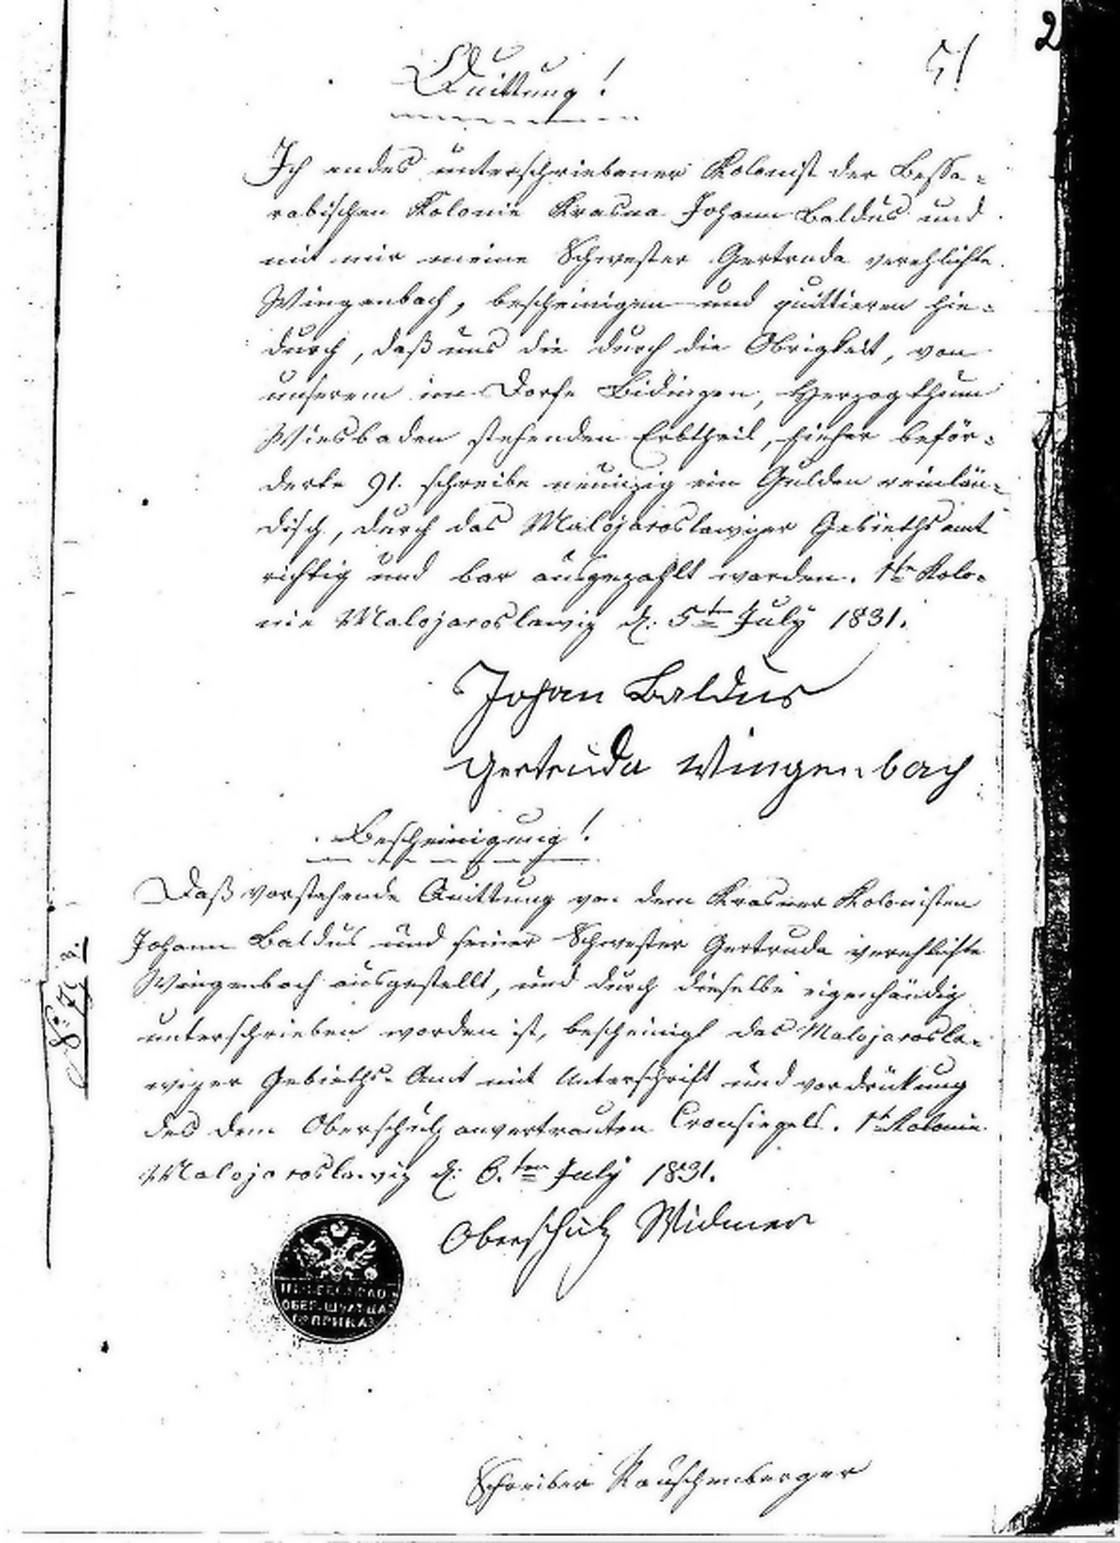 2
51
Quittung!
Ich endes unterschriebener Kolonist der Bessa-
rabischen Kolonie Krasna Johann Baldus und
mit mir meine Schwester Gertruda verehlichte
Wingenbach, bescheinigen und quittieren hie-
durch, daß uns die durch die Obrigkeit, von
unserem im Dorfe Bidingen, Herzogthum
Wiesbaden stehenden Erbtheil, hieher beför-
derte 91. schreibe neunzig ein Gulden reinlän-
disch, durch das Malojaroslawizer Gebiethsamt
richtig und bar ausgezahlt worden. 1te Kolo-
nie Malojaroslawiz d: 5te July 1831.
Johan Baldus
Gertruda Wingenbach
Bescheinigung!
Daß vorstehende Quittung von dem Krasner Kolonisten
Johann Baldus und seiner Schwester Gertruda verehlichte
Wingenbach ausgestellt, und durch dieselbe eigenhändig
unterschrieben worden ist, bescheinigt das Malojarosla-
wizer Gebieths-Amt mit Unterschrift und vordrükung
des dem Oberschulz anvertrauten Cronsiegels. 1te Kolonie
Malojaroslawiz d: 6.ten July 1831.
Oberschulz Widmer
ОБЕР-ШУЛЦА
ПРИКАЗ
Schreiber Rauschenberger